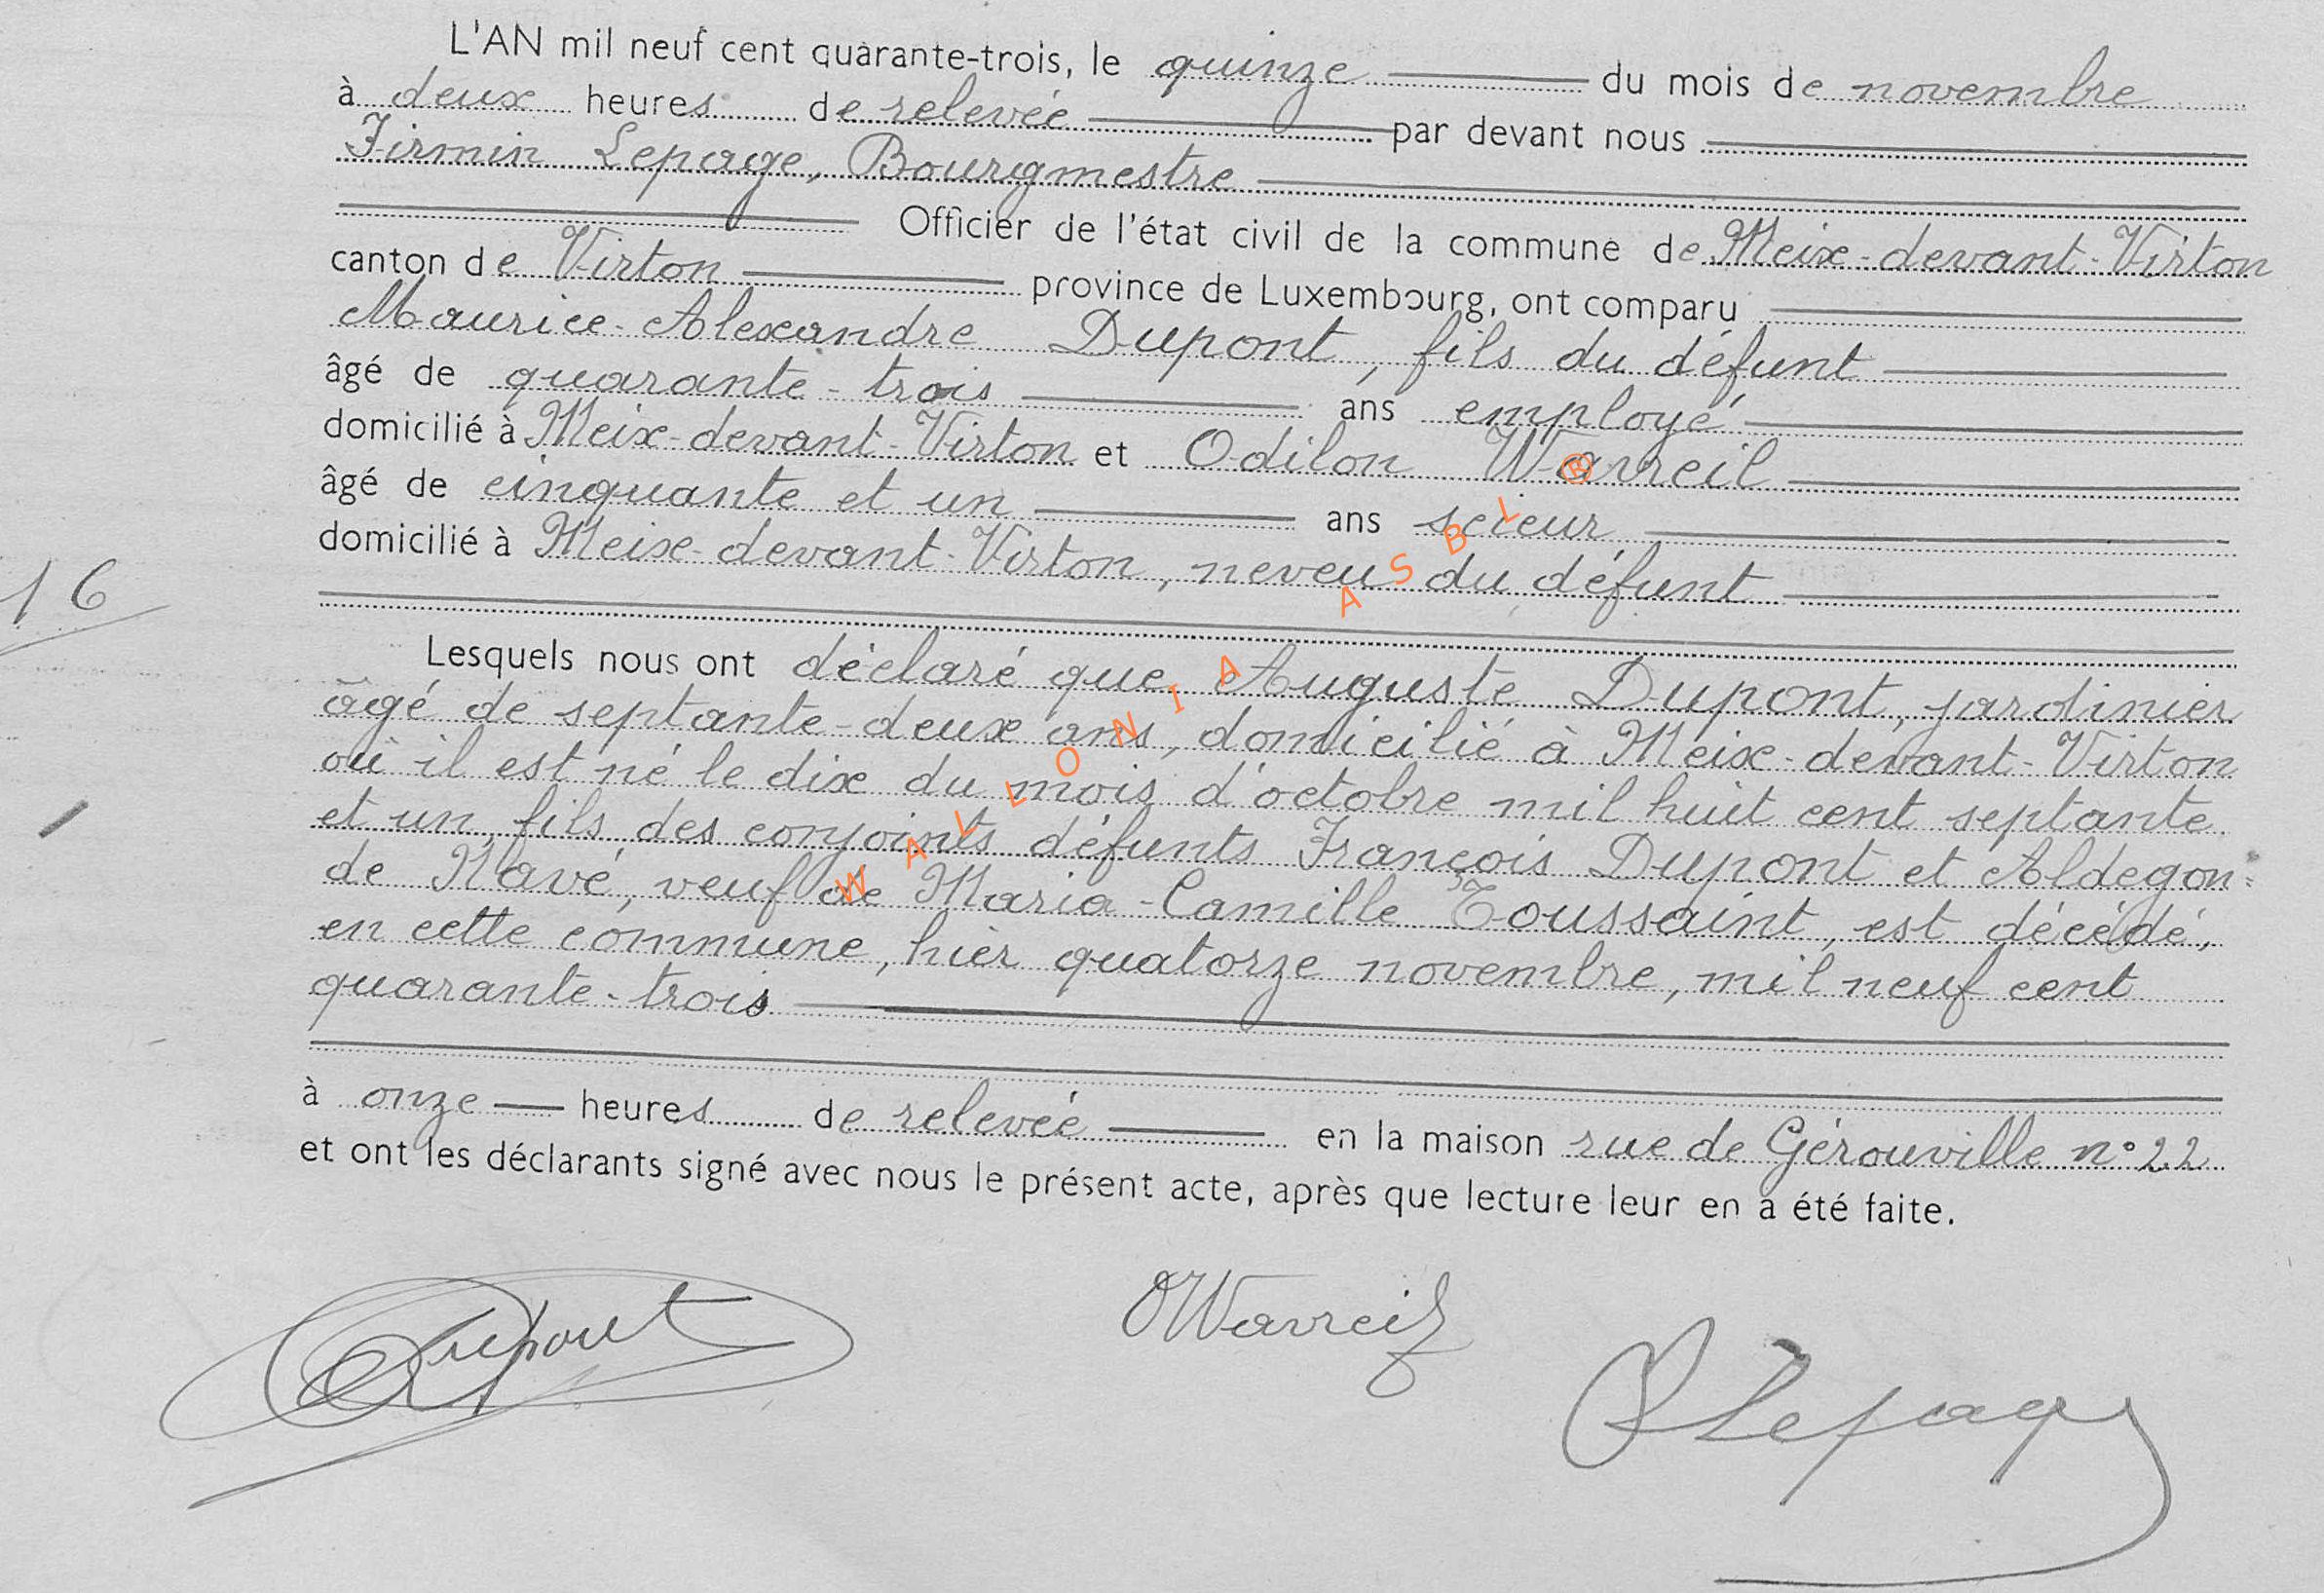 L'AN mil neuf cent quarante-trois, le quinze du mois de novembre
à deux heures de relevée par devant nous
Firmin Lepage, Bourgmestre
Officier de l'état civil de la commune de Meix-devant-Virton
canton de Virton province de Luxembourg, ont comparu
Maurice-Alexandre Dupont, fils du défunt
âgé de quarante-trois ans employé
domicilié à Meix-devant-Virton et Odilon Wavreil
âgé de cinquante et un ans scieur
domicilié à Meix-devant-Virton, neveu du défunt
16
Lesquels nous ont déclaré que Auguste Dupont, jardinier
âgé de septante-deux ans, domicilié à Meix-devant-Virton
où il est né le dix du mois d'octobre mil huit cent septante
et un, fils des conjoints défunts François Dupont et Aldegon=
de Navé, veuf de Maria-Camille Toussaint, est décédé,
en cette commune, hier quatorze novembre, mil neuf cent
quarante-trois
à onze heures de relevée en la maison rue de Gérouville n° 22
et ont les déclarants signé avec nous le présent acte, après que lecture leur en a été faite.
Dupont
OWavreil
FLepage
WALLONIA ASBL ®